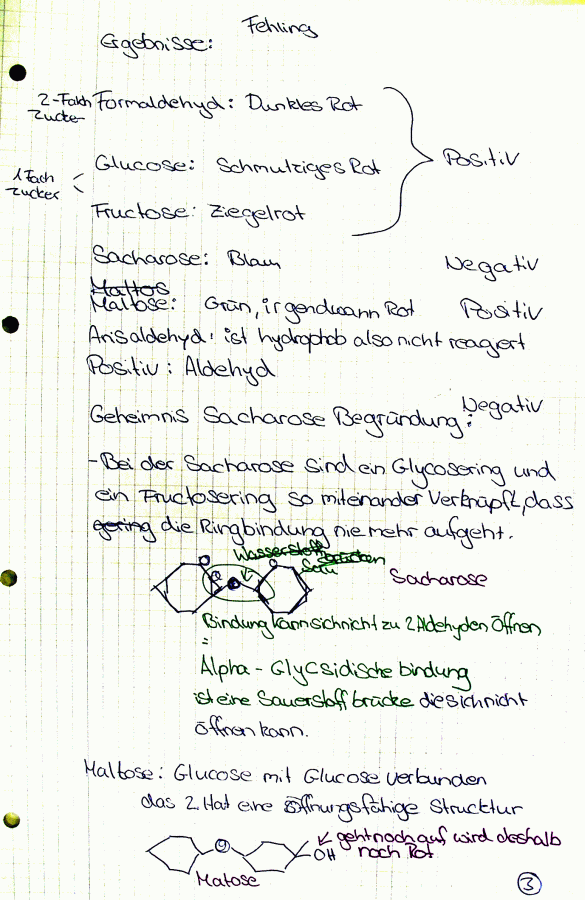 Fehling
Ergebnisse:
2-Fakh Zucker
Formaldehyd: Dunkles Rot
1 Fach Zucker
Glucose: Schmutziges Rot
Positiv
Fructose: Ziegelrot
Sacharose: Blau Negativ
Maltos
Maltose: Grün, irgendwann Rot Positiv
Anisaldehyd: ist hydrophob also nicht reagert
Positiv: Aldehyd
Negativ
Geheimnis Sacharose Begründung:
-Bei der Sacharose sind ein Glycosering und
ein Fructosering so miteinander Verknüpft, dass
gering die Ringbindung nie mehr aufgeht.
Wasserstoffbrücken
Sacharose
Bindung kann sich nicht zu 2 Aldehyden Öffnen
=
Alpha - Glycsidische bindung
ist eine Sauerstoff brücke die sich nicht
öffnen kann.
Maltose: Glucose mit Glucose verbunden
das 2. Hat eine Öffnungsfähige Structur
geht noch auf, wird deshalb
OH noch Rot
Matose
3